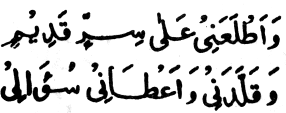 وَاَطْلَعَنِىْ عَلٰى سِرٍّ قَدِيْمٍ
وَ قَلَّدَنِىْ وَاَعْطَانِىْ سُؤَالِىْ